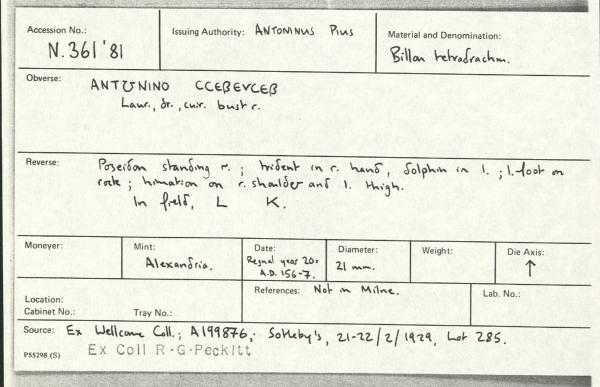 Accession No.: N.361'81
Issuing Authority: ANTONINUS PIUS
Material and Denomination: Billon tetradrachm.
Obverse: ANTωNINO CCEBEVCEB
Laur., dr., cuir. bust r.
Reverse: Poseidon standing r.; trident in r. hand, dolphin in l.; l. foot on
rock; himation on r. shoulder and l. thigh.
In field, L K.
Moneyer:
Mint: Alexandria.
Date: Regnal year 20=
A.D. 156-7.
Diameter: 21 mm.
Weight:
Die Axis: ↑
Location:
Cabinet No.: Tray No.:
References: Not in Milne.
Lab. No.:
Source: Ex Wellcome Coll.; A199876; Sotheby's, 21-22/2/1929, Lot 285.
P55298 (S) Ex Coll R·G·Peckitt